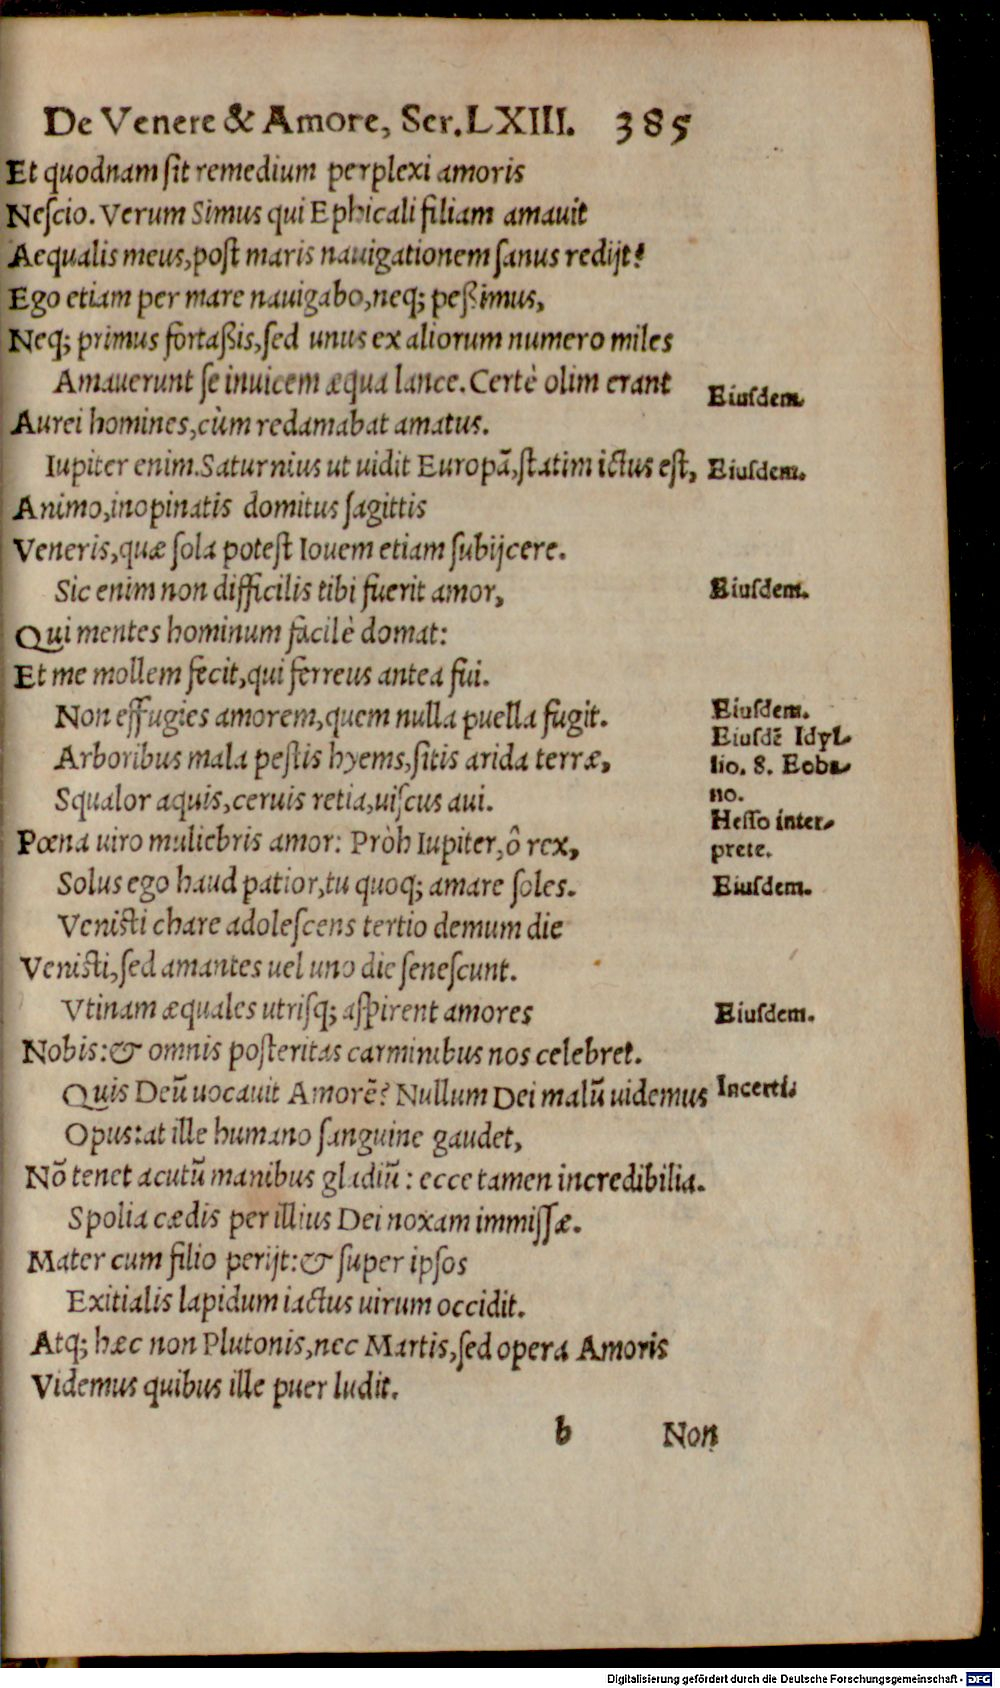 De Venere & Amore, Ser. LXIII. 385
Et quodnam sit remedium perplexi amoris
Nescio. Verum Simus qui Ephicali filiam amauit
Aequalis meus, post maris nauigationem sanus redijt:
Ego etiam per mare nauigabo, neq; peßimus,
Neq; primus fortaßis, sed unus ex aliorum numero miles
Amauerunt se inuicem æqua lance. Certè olim erant
Eiusdem.
Aurei homines, cùm redamabat amatus.
Iupiter enim. Saturnius ut uidit Europã, statim ictus est,
Eiusdem.
Animo, inopinatis domitus sagittis
Veneris, quæ sola potest Iouem etiam subijcere.
Sic enim non difficilis tibi fuerit amor,
Eiusdem.
Qui mentes hominum facilè domat:
Et me mollem fecit, qui ferreus antea fui.
Non effugies amorem, quem nulla puella fugit.
Eiusdem.
Arboribus mala pestis hyems, sitis arida terræ,
Eiusdẽ Idyl-
lio. 8. Eoba-
Squalor aquis, ceruis retia, uiscus aui.
no.
Pœna uiro muliebris amor: Pròh Iupiter, ô rex,
Hesso inter-
prete.
Solus ego haud patior, tu quoq; amare soles.
Eiusdem.
Venisti chare adolescens tertio demum die
Venisti, sed amantes uel uno die senescunt.
Vtinam æquales utrisq; aspirent amores
Eiusdem.
Nobis: & omnis posteritas carminibus nos celebret.
Quis Deũ uocauit Amorẽ? Nullum Dei malũ uidemus
Incerti.
Opus: at ille humano sanguine gaudet,
Nõ tenet acutũ manibus gladiũ: ecce tamen incredibilia.
Spolia cædis per illius Dei noxam immissæ.
Mater cum filio perijt: & super ipsos
Exitialis lapidum iactus uirum occidit.
Atq; hæc non Plutonis, nec Martis, sed opera Amoris
Videmus quibus ille puer ludit.
b Non
Digitalisierung gefördert durch die Deutsche Forschungsgemeinschaft - DFG